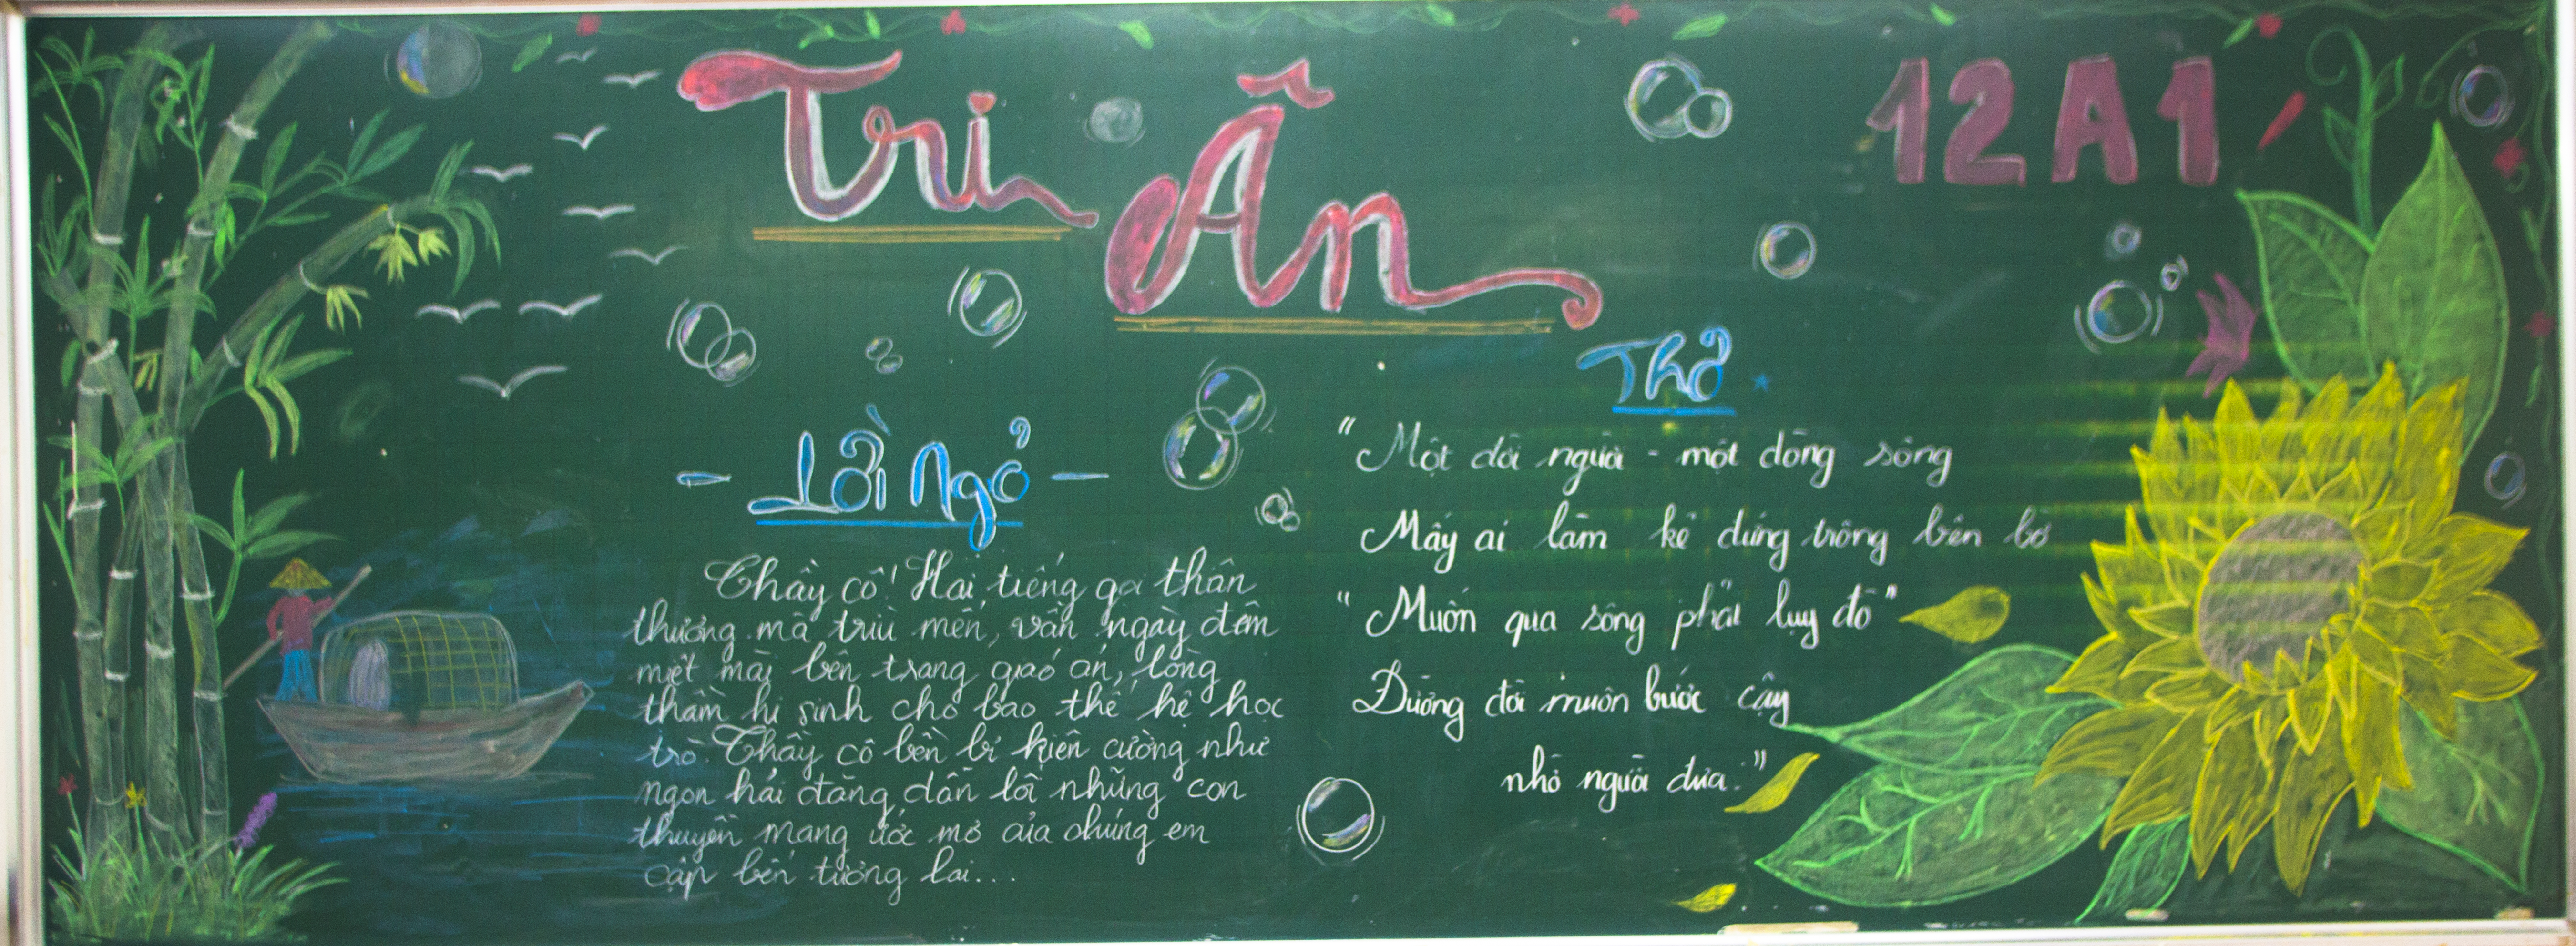 Tri Ân
12A1
Lời Ngỏ
Thầy cô! Hai tiếng gọi thân
thương mà trìu mến, vẫn ngày đêm
miệt mài bên trang giáo án, lòng
thầm hi sinh cho bao thế hệ học
trò. Thầy cô bền bỉ kiên cường như
ngọn hải đăng dẫn lối những con
thuyền mang ước mơ của chúng em
cập bến tương lai...
Thơ
"Một đời người - một dòng sông
Mấy ai làm kẻ đứng trông bến bờ
"Muốn qua sông phải lụy đò"
Đường đời muôn bước cậy
nhờ người đưa."